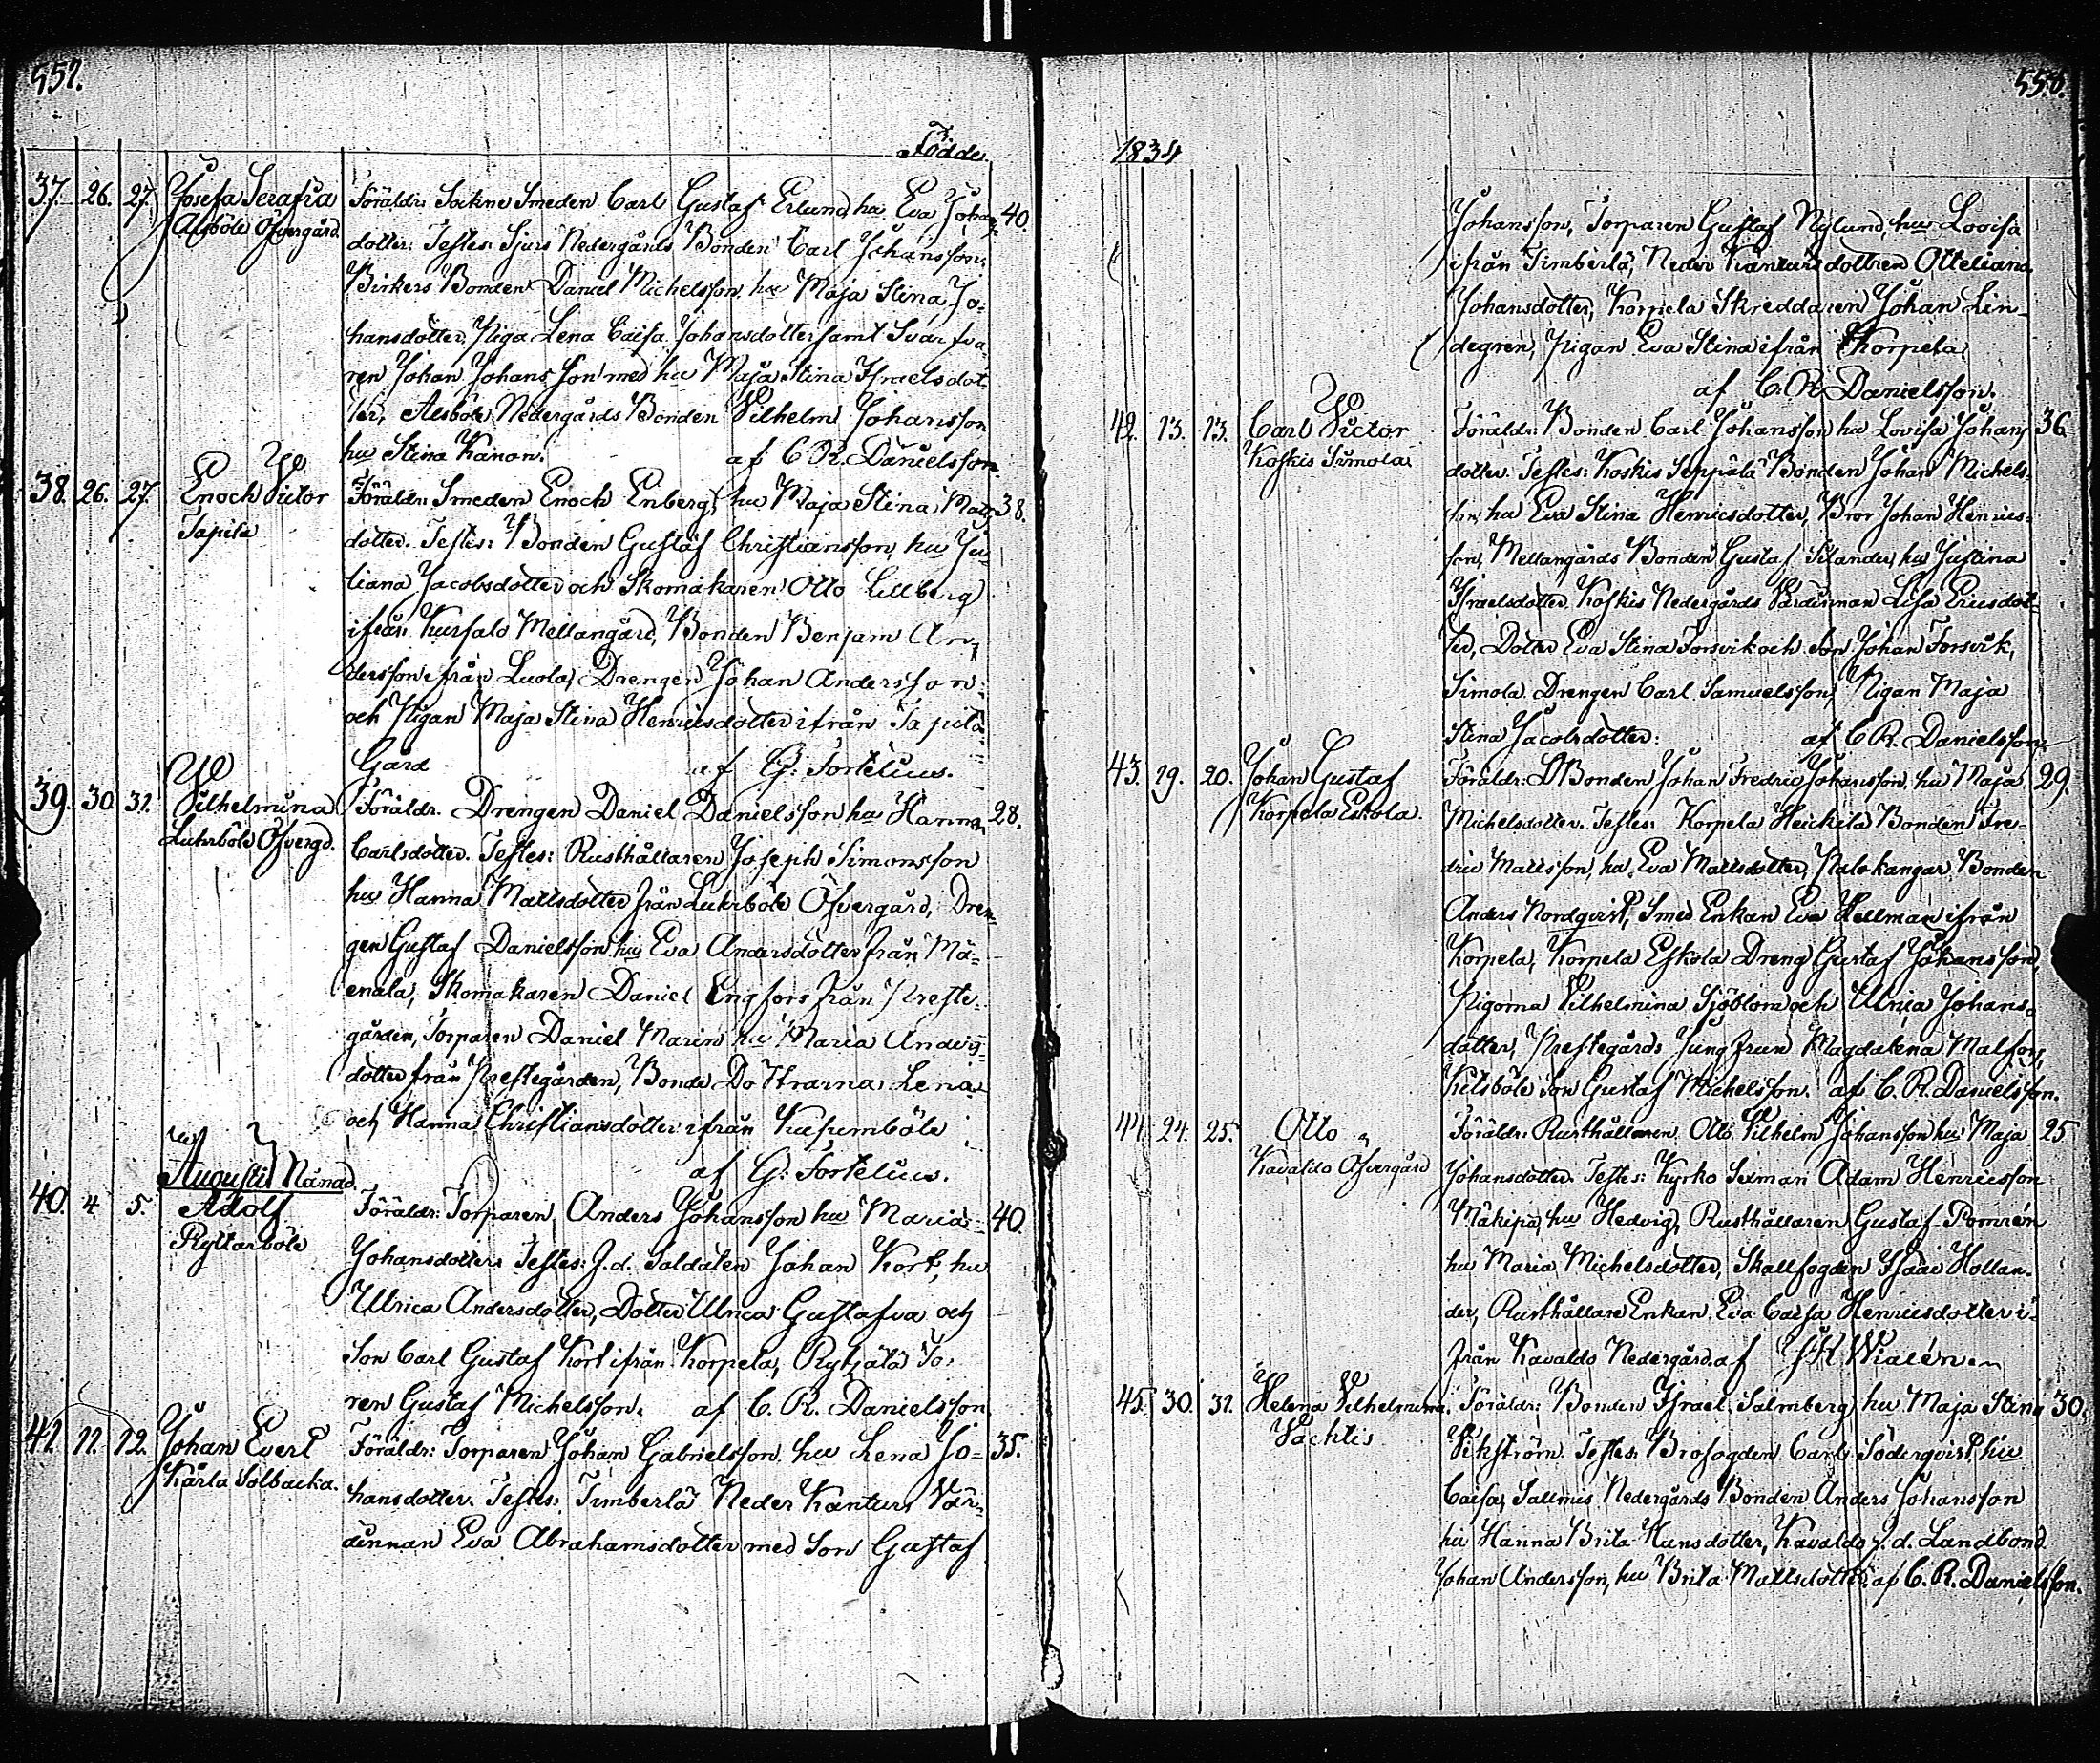 557.
Födde
37. 26. 27. Josefa Serafia Föräldr: Sockne Smeden Carl Gustaf Erlund, hu Eva Johans 40.
Alsböle Öfvergård. dotter. Testes: Sjurs Nedergårds Bonden Carl Johansson,
Birkers Bonden Daniel Michelsson hu Maja Stina Jo=
hansdotter, Piga Lena Caisa Johansdotter samt Svarfva
ren Johan Johansson med hu Maja Stina Israelsdot
ter, Alsböle Nedergårds Bonden Vilhelm Johansson
hu Stina Kanon. af C R. Danielsson
38. 26. 27. Enoch Victor Föräldr: Smeden Enoch Enberg, hu Maja Stina Matts 38.
Tapila dotter. Testes: Bonden Gustaf Christiansson, hu Ju
liana Jacobsdotter och Skomakaren Otto Lillberg
ifrån Kurfalo Mellangård, Bonden Benjam An=
dersson ifrån Luola, Drengen Johan Andersson
och Pigan Maja Stina Henricsdotter ifrån Tapila
Gård af G: Fortelius.
39. 30. 31. Vilhelmina Föräldr. Drengen Daniel Danielsson hu Hanna 28.
Luhrböle Öfvergd. Carlsdotter. Testes: Rusthållaren Joseph Simonsson
hu Hanna Mattsdotter från Luhrböle Öfvergård, Dren=
gen Gustaf Danielsson hu Eva Andersdotter från Mä=
enala, Skomakaren Daniel Engfors från Preste
gården, Torparen Daniel Marin hu Maria Anders
dotter från Prestegården, Bonde Döttrarna Lena
och Hanna Christiansdotter ifrån
af G: Fortelius.
Augusti Månad.
40. 4. 5. Adolf Föräldr: Torparen Anders Johansson hu Maria 40.
Ryttarböle Johansdotter. Testes: F. d. Soldaten Johan Kort, hu
Ulrica Andersdotter, Dotter Ulrica Gustafva och
Son Carl Gustaf Kort ifrån Korpela, Rytjälä To
ren Gustaf Michelsson. af C. R. Danielsson
41. 11. 12. Johan Evert Föräldr: Torparen Johan Gabrielsson hu Lena Jo= 35.
Kärla Solbacka. hansdotter. Testes: Timberlä Neder Kanturs Vär=
dinnan Eva Abrahamsdotter med Son Gustaf
558.
1834
Johansson, Torparen Gustaf Nylund, hu Lovisa
ifrån Timberlä, Neder Kanturs dottren Otteliana
Johansdotter, Korpela Skreddaren Johan Lin=
degren, Pigan Eva Stina ifrån Korpela
af C. R. Danielsson.
42. 13. 13. Carl Victor Föräldr: Bonden Carl Johansson hu Lovisa Johans 36.
Koskis Simola dotter. Testes: Koskis Seppälä Bonden Johan Michels=
son, hu Eva Stina Henricsdotter, Bror Johan Henrics=
son, Mellangårds Bonden Gustaf Silander, hu Justina
Israelsdotter, Koskis Nedergårds Värdinnan Lisa Ericsdot=
ter, Dotter Eva Stina Forsvik och Son Johan Forsvik,
Simola Drengen Carl Samuelsson, Pigan Maja
Stina Jacobsdotter: af C R. Danielsson
43. 19. 20. Johan Gustaf Föräldr: LBonden Johan Fredric Johansson, hu Maja 29.
Korpela Eskola. Michelsdotter. Testes: Korpela Heickilä Bonden Fre=
dric Mattsson, hu Eva Mattsdotter, Palokangar Bonden
Anders Nordqvist, Smed Enkan Eva Hellman ifrån
Korpela, Korpela Eskola Dreng Gustaf Johansson,
Pigorna Vilhelmina Sjöblom och Ulrica Johans
dotter, Prestegårds Jungfrun Magdalena Malfors,
Kitsböle Son Gustaf Michelsson. af C. R. Danielsson.
44. 24. 25. Otto Föräldr: Rusthållaren Otto Vilhelm Johansson hu Maja 25
Kavaldo Öfvergård Johansdotter. Testes: Kyrko Sexman Adam Henricsson
Mäkipä, hu Hedvig, Rusthållaren Gustaf Pomrén
hu Maria Michelsdotter, Skallfogden Isaac Hollan=
der, Rusthållare Enkan Eva Caisa Henricsdotter i=
från Kavaldo Nedergård. af
45. 30. 31. Helena Vilhelmina. Föräldr: Bonden Israel Salmberg hu Maja Stina 30.
Vachtis Vikström. Testes: Brofogden Carl Söderqvist, hu
Caisa, Sallmis Nedergårds Bonden Anders Johansson
hu Hanna Brita Hansdotter, Kavaldo f. d. Landbond.
Johan Andersson, hu Brita Mattsdotter. af C. R. Danielsson.